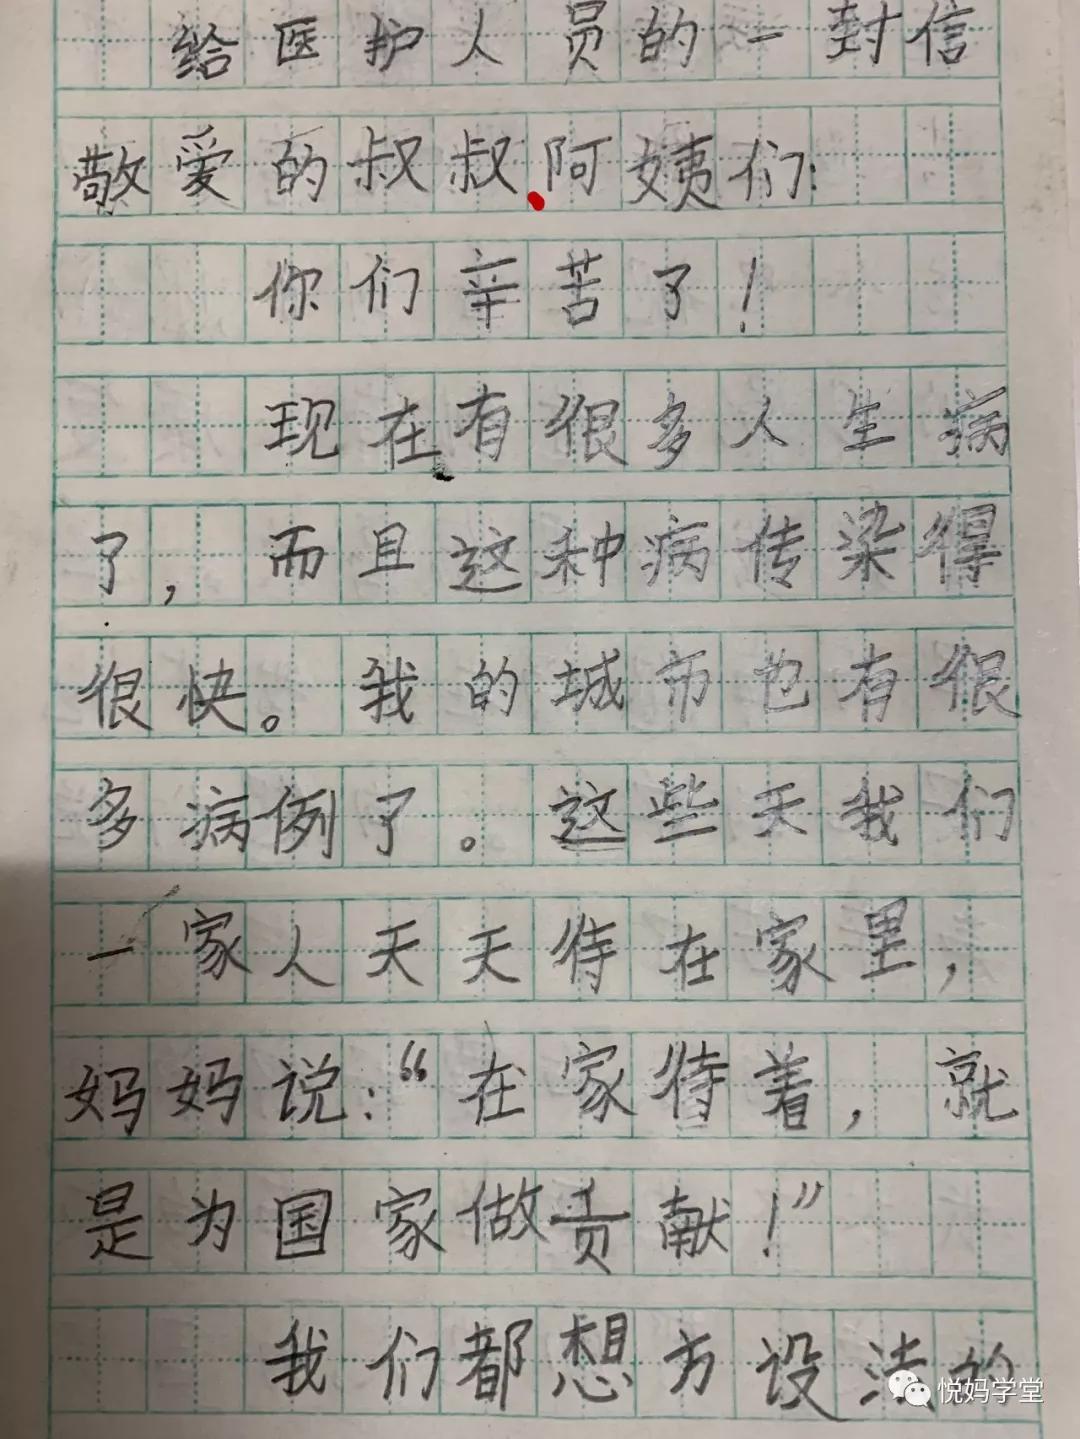 给医护人员的一封信
敬爱的叔叔阿姨们:
你们辛苦了!
现在有很多人生病
了,而且这种病传染得
很快。我的城市也有很
多病例了。这些天我们
一家人天天待在家里,
妈妈说:“在家待着,就
是为国家做贡献!”
我们都想方设法的
悦妈学堂